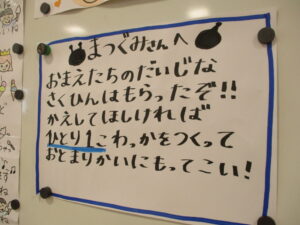 まつぐみさんへ
おまえたちのだいじな
さくひんはもらったぞ!!
かえしてほしければ
ひとり1こわっかをつくって
おとまりかいにもってこい!